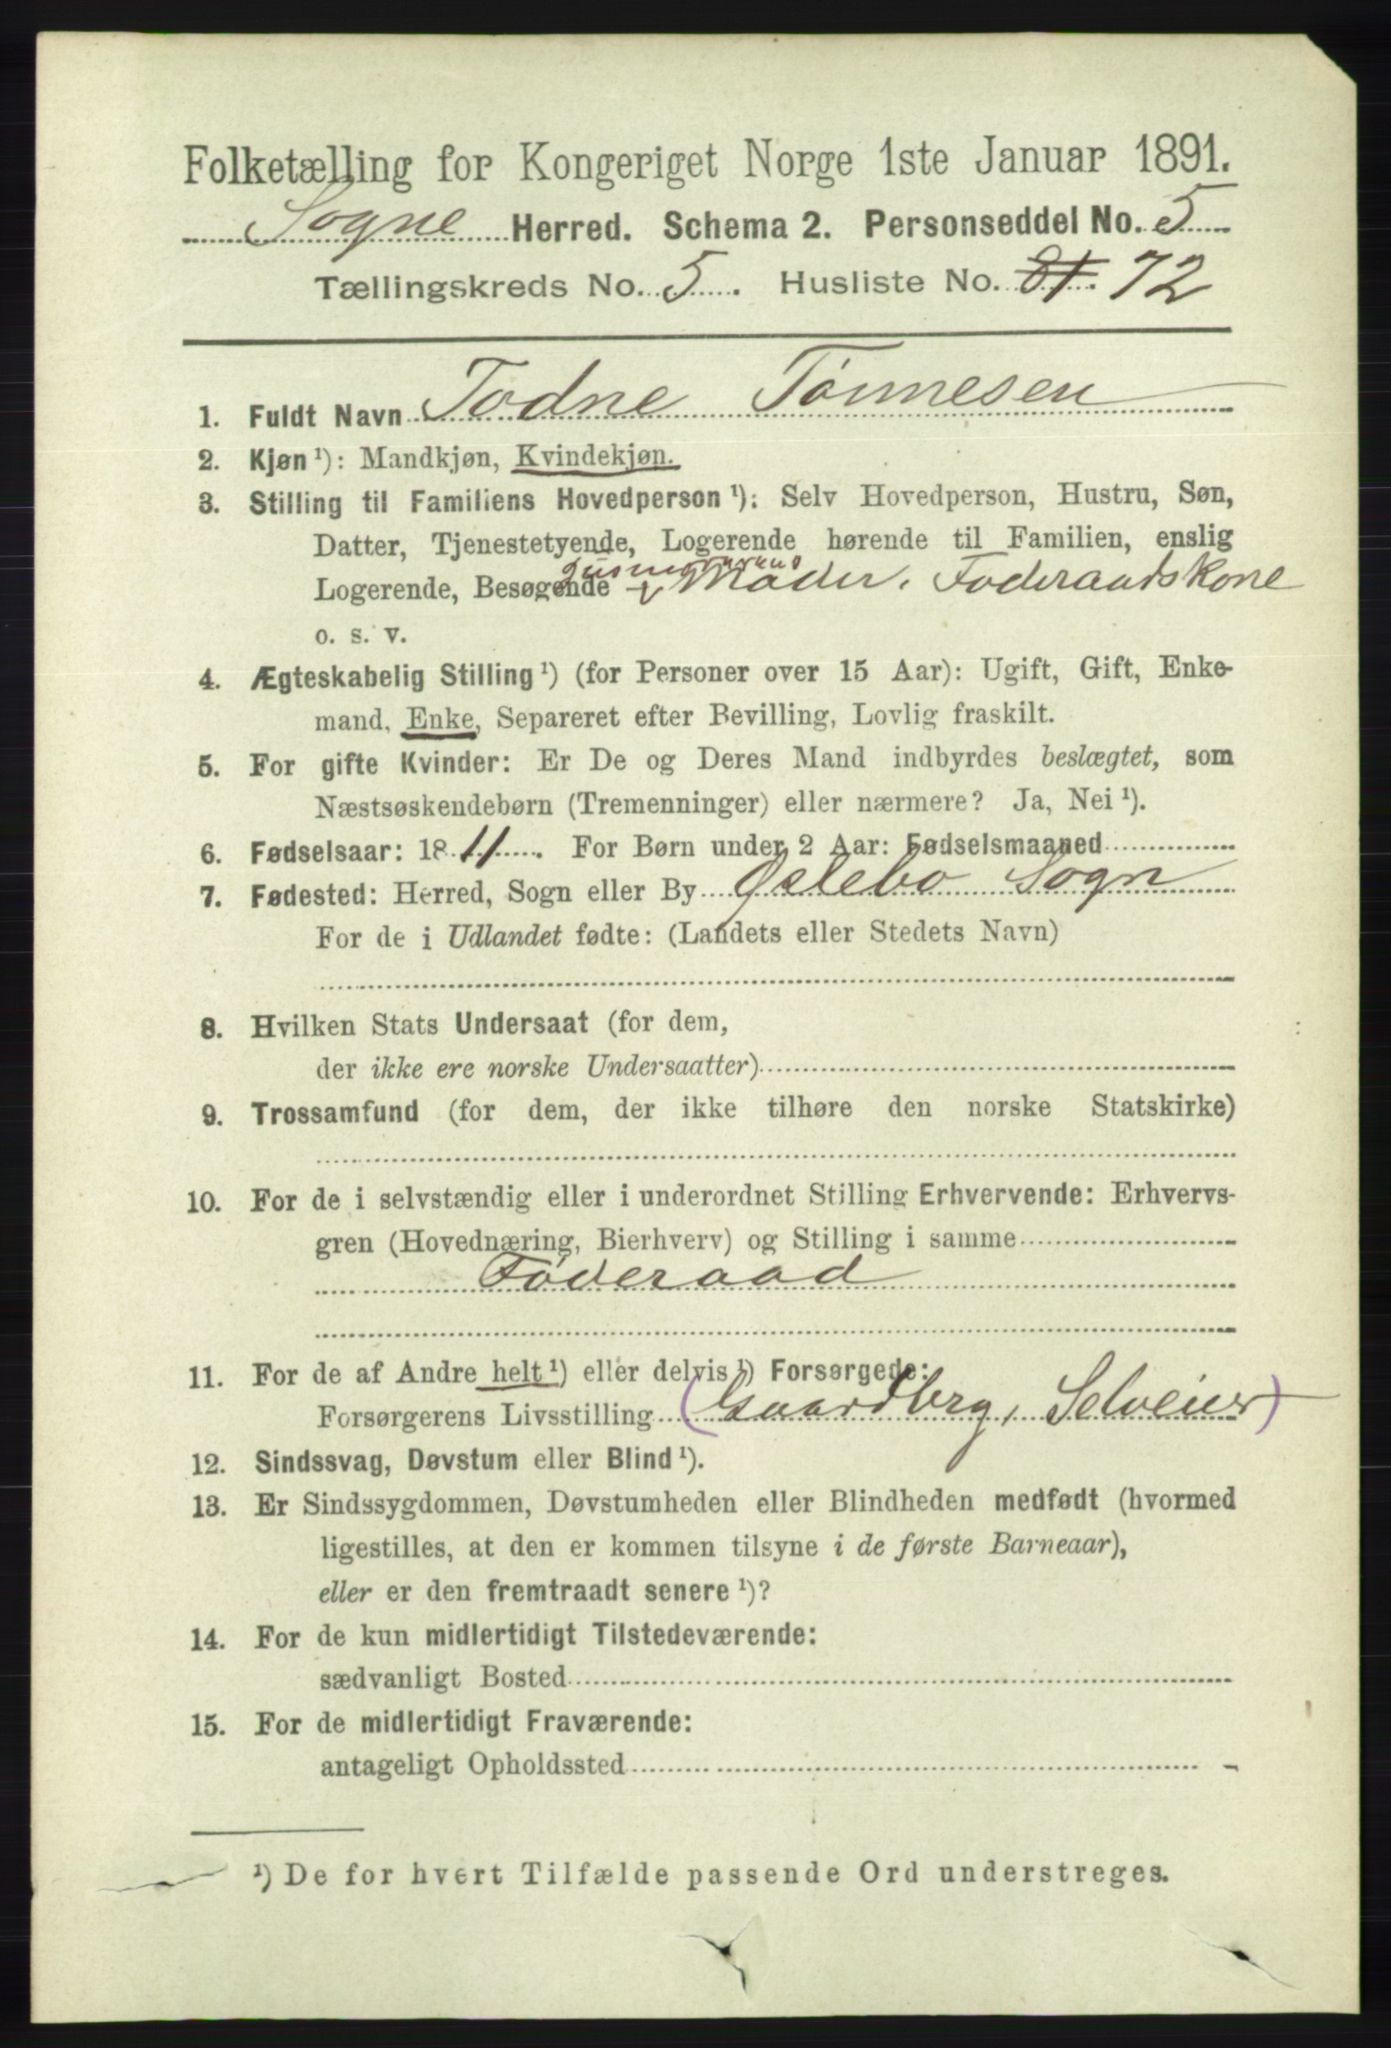 Folketælling for Kongeriget Norge 1ste Januar 1891.
Sogne Herred. Schema 2. Personseddel No. 5
Tællingskreds No. 5. Husliste No. 81. 72
1. Fuldt Navn Todne Tönnesen
2. Kjøn ¹): Mandkjøn, Kvindekjøn.
3. Stilling til Familiens Hovedperson ¹): Selv Hovedperson, Hustru, Søn,
Datter, Tjenestetyende, Logerende hørende til Familien, enslig
Logerende, Besøgende Moder, Foderaadskone
o. s. v.
4. Ægteskabelig Stilling ¹) (for Personer over 15 Aar): Ugift, Gift, Enke-
mand, Enke, Separeret efter Bevilling, Lovlig fraskilt.
5. For gifte Kvinder: Er De og Deres Mand indbyrdes beslægtet, som
Næstsøskendebørn (Tremenninger) eller nærmere? Ja, Nei ¹).
6. Fødselsaar: 1811. For Børn under 2 Aar: Fødselsmaaned
7. Fødested: Herred, Sogn eller By Øslebo Sogn
For de i Udlandet fødte: (Landets eller Stedets Navn)
8. Hvilken Stats Undersaat (for dem,
der ikke ere norske Undersaatter)
9. Trossamfund (for dem, der ikke tilhøre den norske Statskirke)
10. For de i selvstændig eller i underordnet Stilling Erhvervende: Erhvervs-
gren (Hovednæring, Bierhverv) og Stilling i samme
Föderaad
11. For de af Andre helt ¹) eller delvis ¹) Forsørgede:
Forsørgerens Livsstilling (Gaardbrg, Selveier)
12. Sindssvag, Døvstum eller Blind ¹).
13. Er Sindssygdommen, Døvstumheden eller Blindheden medfødt (hvormed
ligestilles, at den er kommen tilsyne i de første Barneaar),
eller er den fremtraadt senere ¹)?
14. For de kun midlertidigt Tilstedeværende:
sædvanligt Bosted
15. For de midlertidigt Fraværende:
antageligt Opholdssted
¹) De for hvert Tilfælde passende Ord understreges.